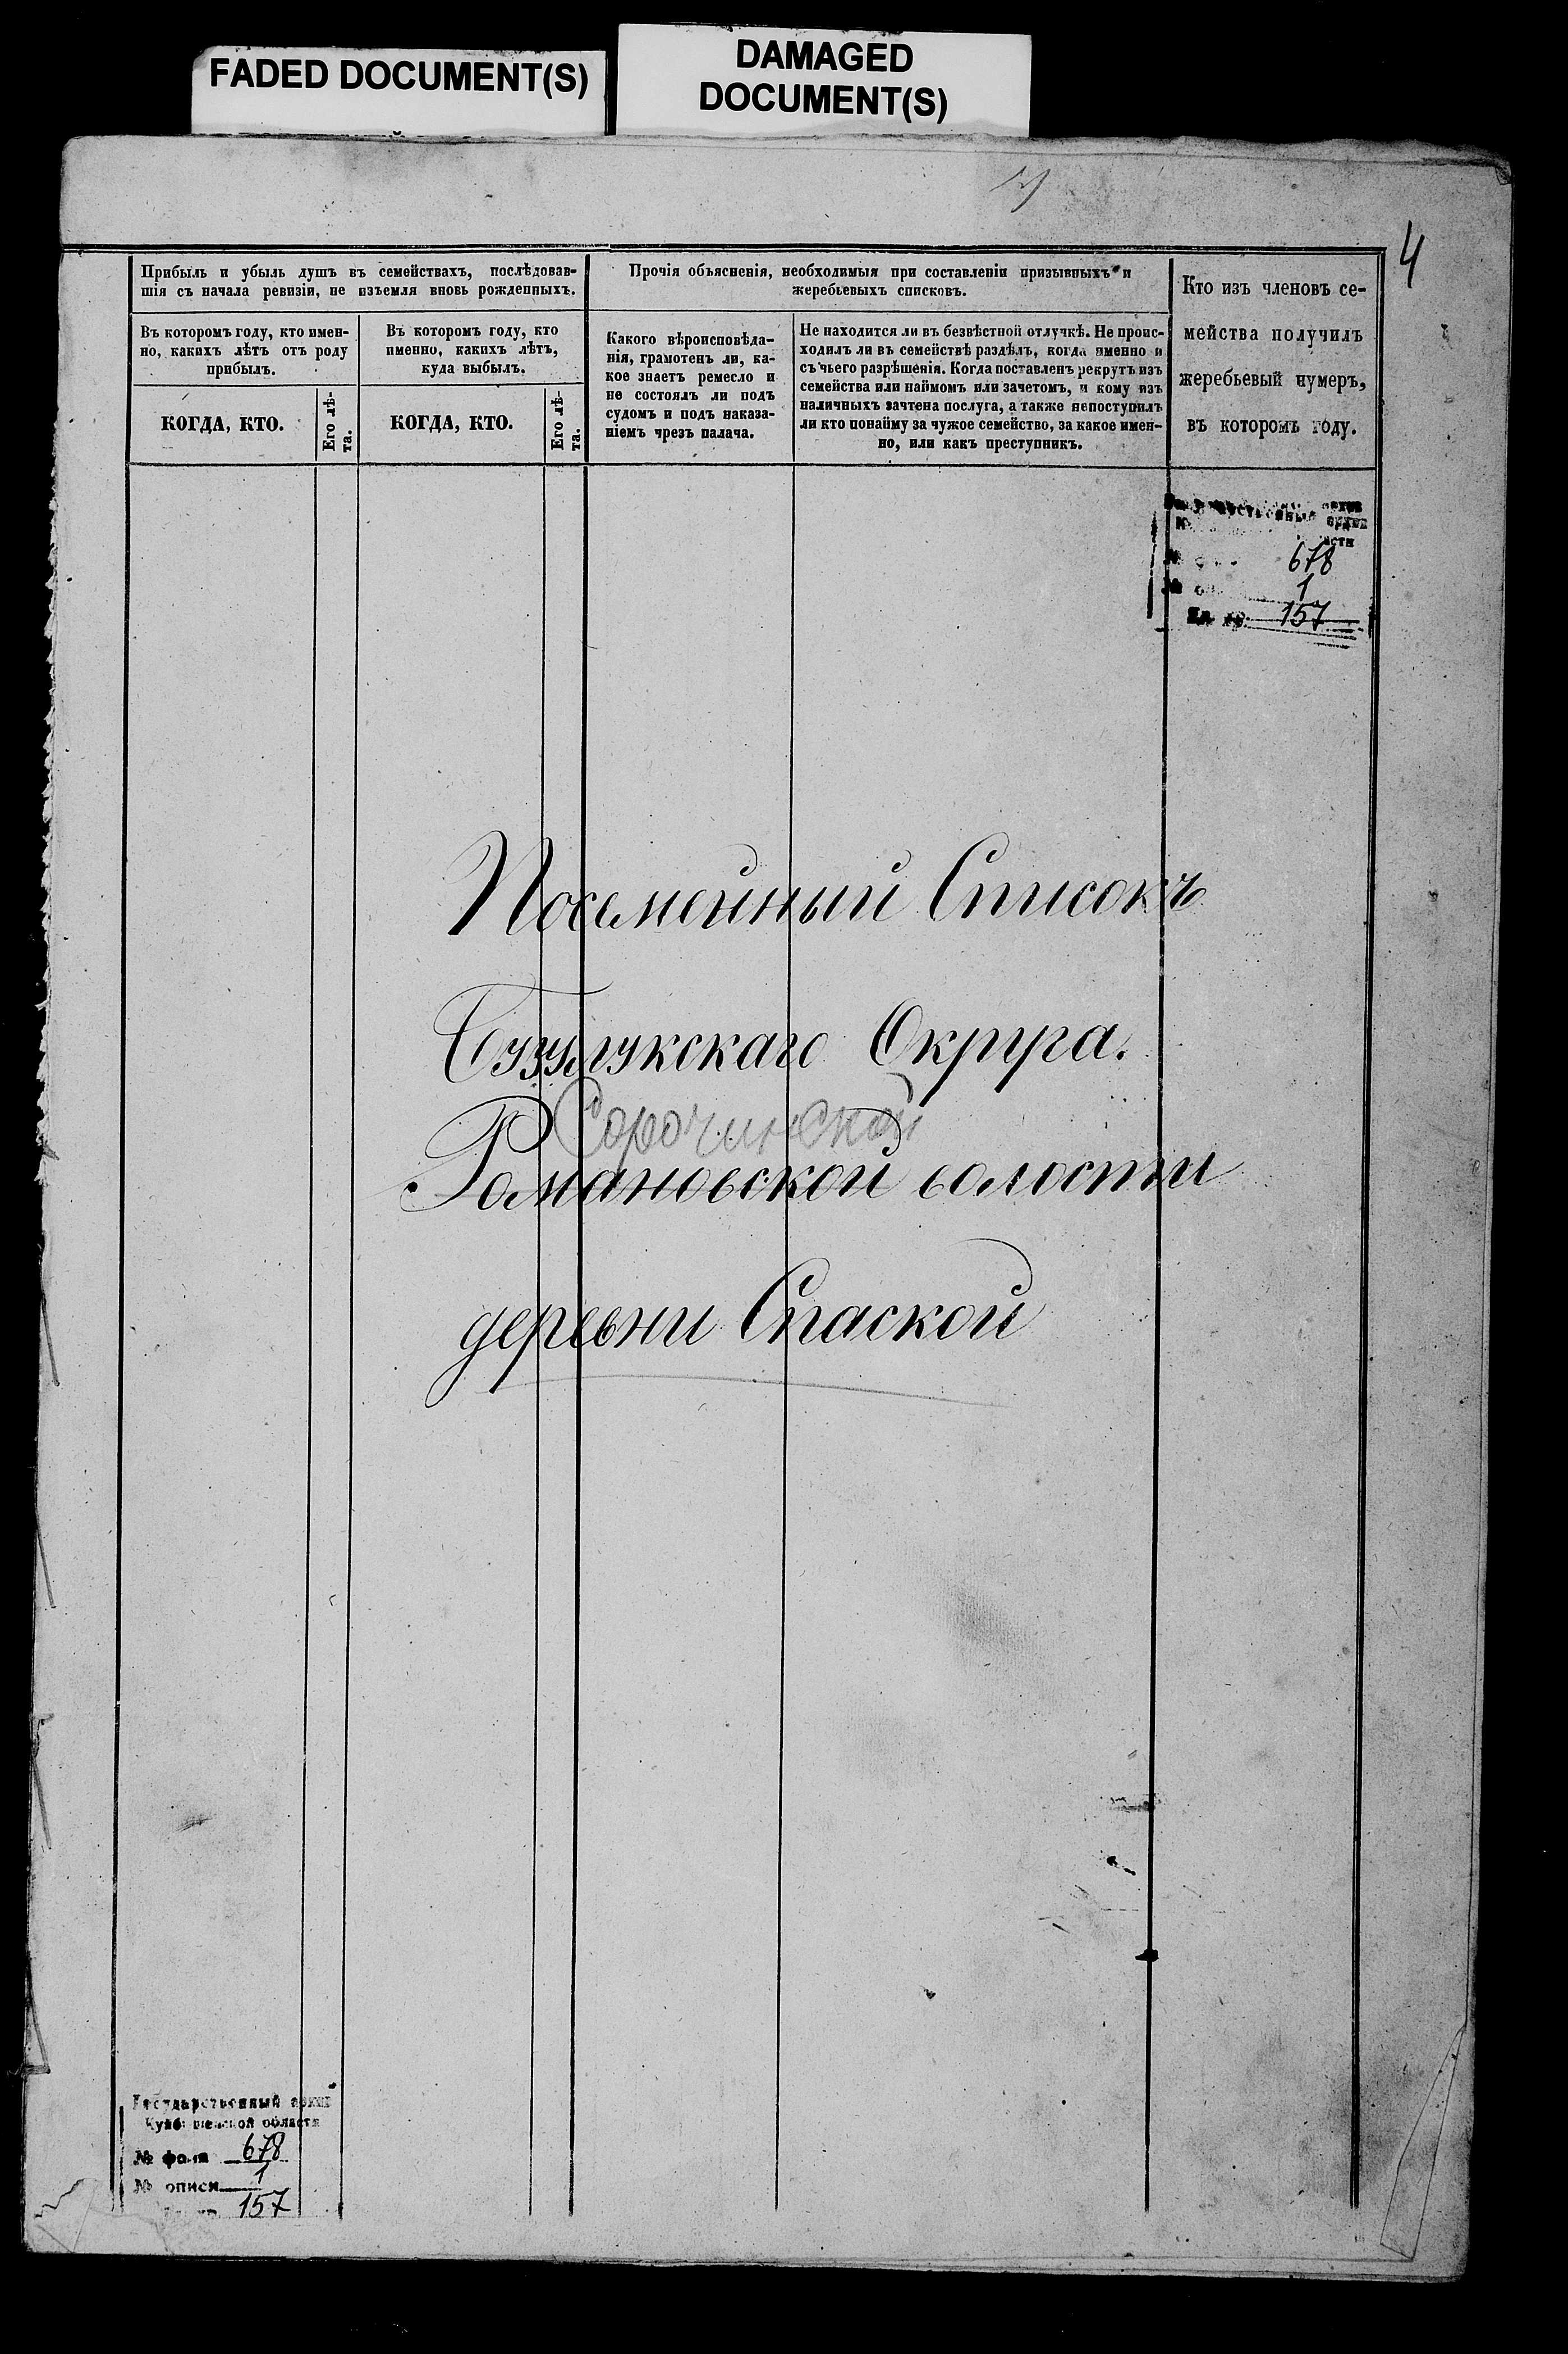 FADED DOCUMENT(S)
DAMAGED
DOCUMENT(S)
4
Прибыль и убыль душъ въ семействахъ, послѣдовав-
шія съ начала ревизіи, не изъемля вновь рожденныхъ.
Въ которомъ году, кто имен-
но, какихъ лѣтъ отъ роду
прибылъ.
КОГДА, КТО.
Его лѣ-
та.
Въ которомъ году, кто
именно, какихъ лѣтъ,
куда выбылъ.
КОГДА, КТО.
Его лѣ-
та.
Прочія объясненія, необходимыя при составленіи призывныхъ и
жеребьевыхъ списковъ.
Какого вѣроисповѣда-
нія, грамотенъ ли, ка-
кое знаетъ ремесло и
не состоялъ ли подъ
судомъ и подъ наказа-
ніемъ чрезъ палача.
Не находится ли въ безвѣстной отлучкѣ. Не проис-
ходилъ ли въ семействѣ раздѣлъ, когда именно и
съ чьего разрѣшенія. Когда поставленъ рекрутъ изъ
семейства или наймомъ или зачетомъ, и кому изъ
наличныхъ зачтена послуга, а также непоступилъ
ли кто понайму за чужое семейство, за какое имен-
но, или какъ преступникъ.
Кто изъ членовъ се-
мейства получилъ
жеребьевый нумеръ,
въ которомъ году.
678
1
157
Посемейный Списокъ
Бузулукскаго Округа.
Сорочинской
Романовской волости
деревни Спаской
Государственный архив
Куйбышевской области
№ фонда 678
№ описи 1
157